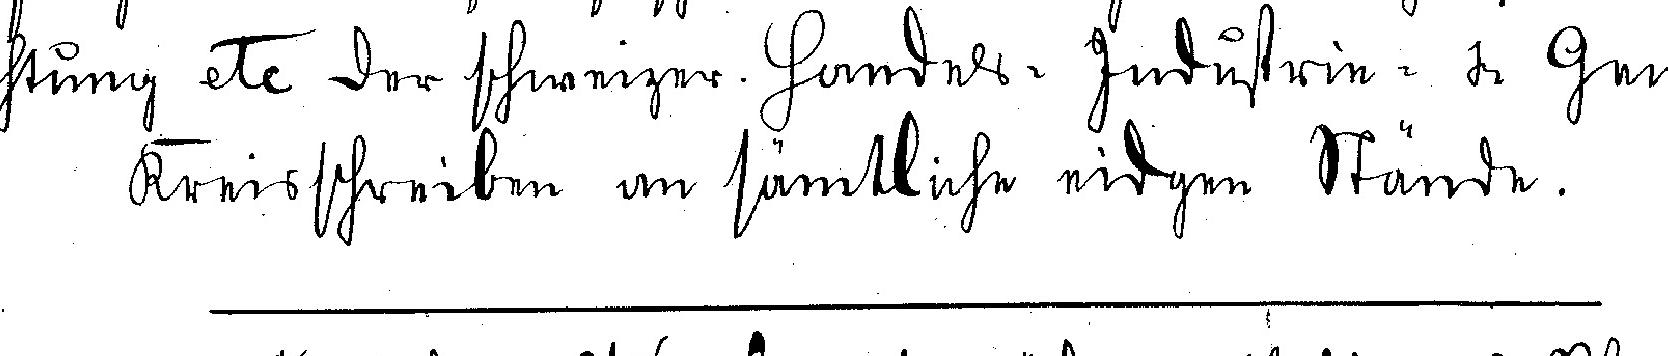 htung etc der schweizer. Handels- Industrie- & Ge
Kreisschreiben an sämtliche eidgen Stände.